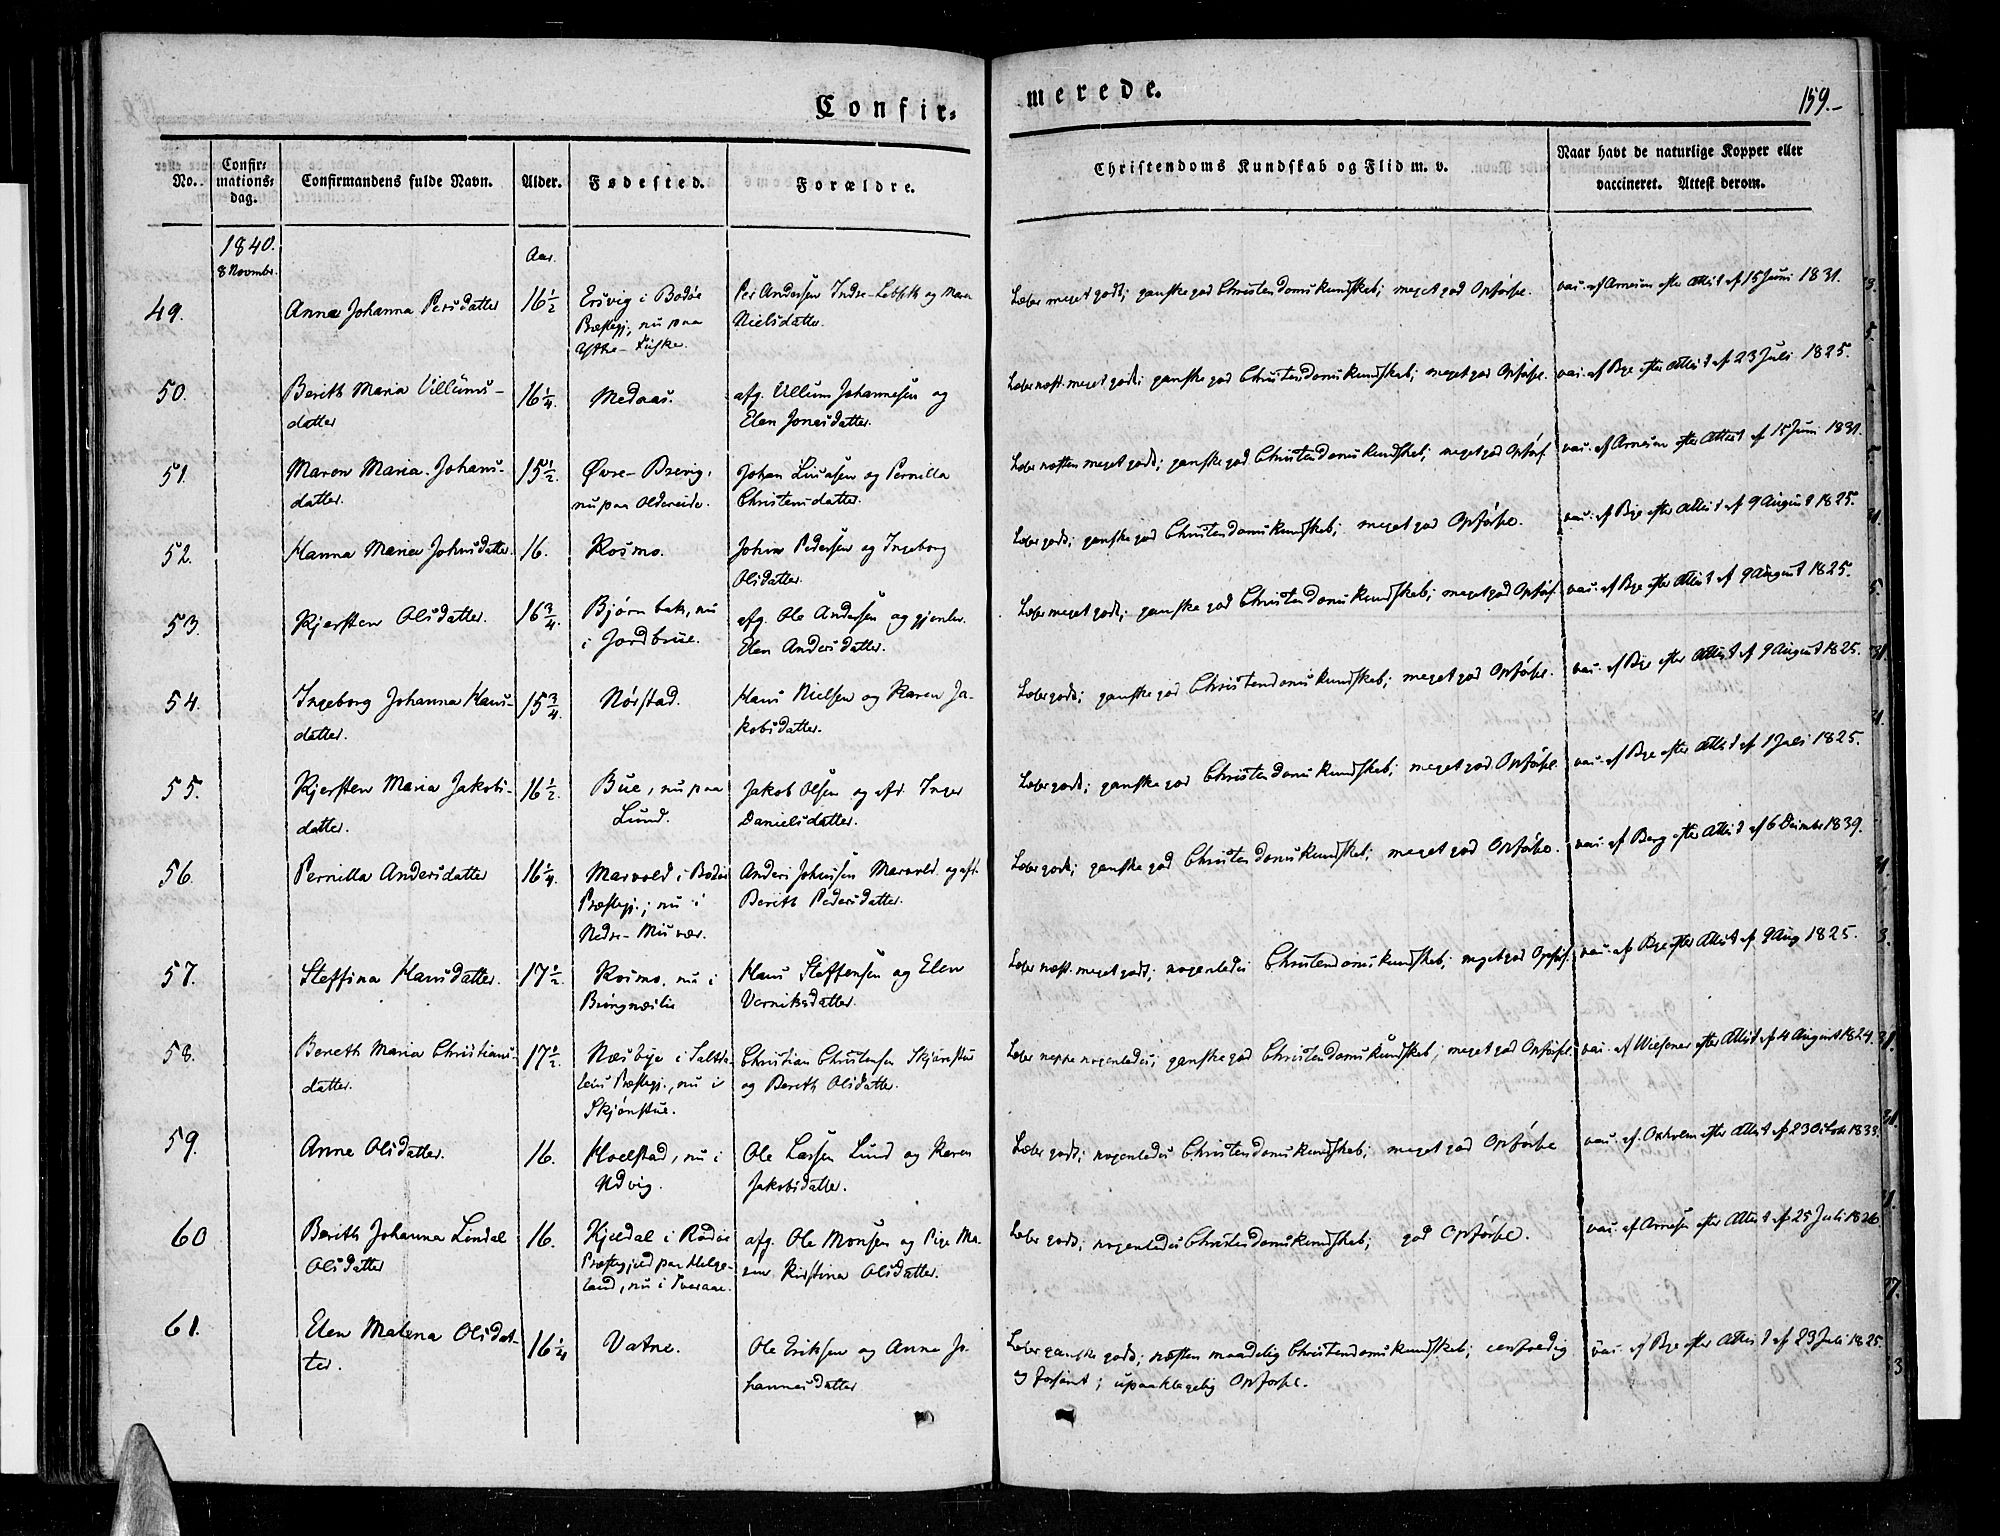 Confir-
merede.
159.-
No.
Confir-
mations-
dag.
Confirmandens fulde Navn.
Alder.
Fødested.
Forældre.
Christendoms Kundskab og Flid m. v.
Naar havt de naturlige Kopper eller
vaccineret. Attest derom.
1840.
8 Novembr.
Aar.
49.
Anna Johanna Persdatter
16½
Ersvig i Bodøe
Præstegj, nu paa
Ytre-
Per Andersen Indre- og Maren
Nielsdatter.
Læser meget godt; ganske god Christendomskundskab; meget god Opførse.
vac. af Arnesen efter Attest af 15 Juni 1831.
50.
Berith Maria Villums-
datter
16¼.
Medaas.
afg. Villum Johannesen og
Elen Jonasdatter.
Læser næst. meget godt; ganske god Christendomskundskab; meget god Opførse.
vac. af Bye efter Attest af 23 Juli 1825.
51.
Maren Maria Johans-
datter.
15½.
Øvre- ,
nu paa Oldereide.
Johan Lucasen og Pernilla
Christensdatter.
Læser næsten meget godt; ganske god Christendomskundskab; meget god Opførs.
vac. af Arnesen efter Attest af 15 Juni 1831.
52.
Hanna Maria Johnsdatter.
16.
Kosmo.
John Pedersen og Ingeborg
Olsdatter.
Læser godt; ganske god Christendomskundskab; meget god Opførse.
vac. af Bye efter Attest af 9 August 1825.
53.
Kjersten Olsdatter.
16¾.
Bjørnbak, nu
i Jordbrue.
afg. Ole Andersen og gjenlev.
Elen Andersdatter.
Læser meget godt; ganske god Christendomskundskab; meget god Opførs.
vac. af Bye efter Attest af 9 August 1825.
54.
Ingeborg Johanna Hans-
datter.
15¾.
Nørstad.
Hans Nielsen og Karen Ja-
kobsdatter.
Læser godt; ganske god Christendomskundskab; meget god Opførse.
vac. af Bye efter Attest af 9 August 1825.
55.
Kjersten Maria Jakobs-
datter.
16½.
Bue, nu paa
Lund.
Jakob Olsen og afd. Inger
Danielsdatter.
Læser godt; ganske god Christendomskundskab; meget god Opførse.
vac. af Bye efter Attest af 1 Juli 1825.
56.
Pernilla Andersdatter
16¼.
Marvold i Bodøe
Præstegj.; nu i
Nedre-Misvær.
Anders Johnsen Marvold og afd.
Berith Pedersdatter.
Læser godt; ganske god Christendomskundskab; meget god Opførse.
vac. af Berg efter Attest af 6 December 1839.
57.
Steffina Hansdatter.
17½.
Kosmo, nu i
Hans Steffensen og Elen
Verniksdatter.
Læser næst. meget godt; nogenledes Christendomskundskab; meget god Opførs.
vac. af Bye efter Attest af 9 Aug 1825.
58.
Bereth Maria Christians-
datter.
17½.
Næsbye i Saltda-
lens Præstegj., nu i
Skjønstue.
Christian Christensen Skjønstue
og Bereth Olsdatter.
Læser neppe nogenledes; ganske god Christendomskundskab; meget god Opførse.
vac. af Wiesener efter Attest af 4 August 1824.
59.
Anne Olsdatter.
16.
Hoelstad, nu i
Udvig.
Ole Larsen Lund og Karen
Jakobsdatter.
Læser godt; nogenledes Christendomskundskab; meget god Opførse
vac. af Oxholm efter Attest af 23 Octobr 1833.
60
Berith Johanna Lindal
Olsdatter
16.
Kjeldal i Rødøe
Præstegjeld paa Helge-
land, nu i
afg. Ole Monsen og Pige Ma-
ren Kirstina Olsdatter.
Læser godt; nogenledes Christendomskundskab; god Opførse.
vac. af Arnesen efter Attest af 25 Juli 1826
61.
Elen Malena Olsdat-
ter.
16¼
Vatne.
Ole Eriksen og Anna Jo-
hannesdatter
Læser ganske godt; næsten maadelig Christendomskundskab; eenfoldig
og forsømt; upaaklagelig Opførse.
vac. af Bye efter Attest af 23 Juli 1825.